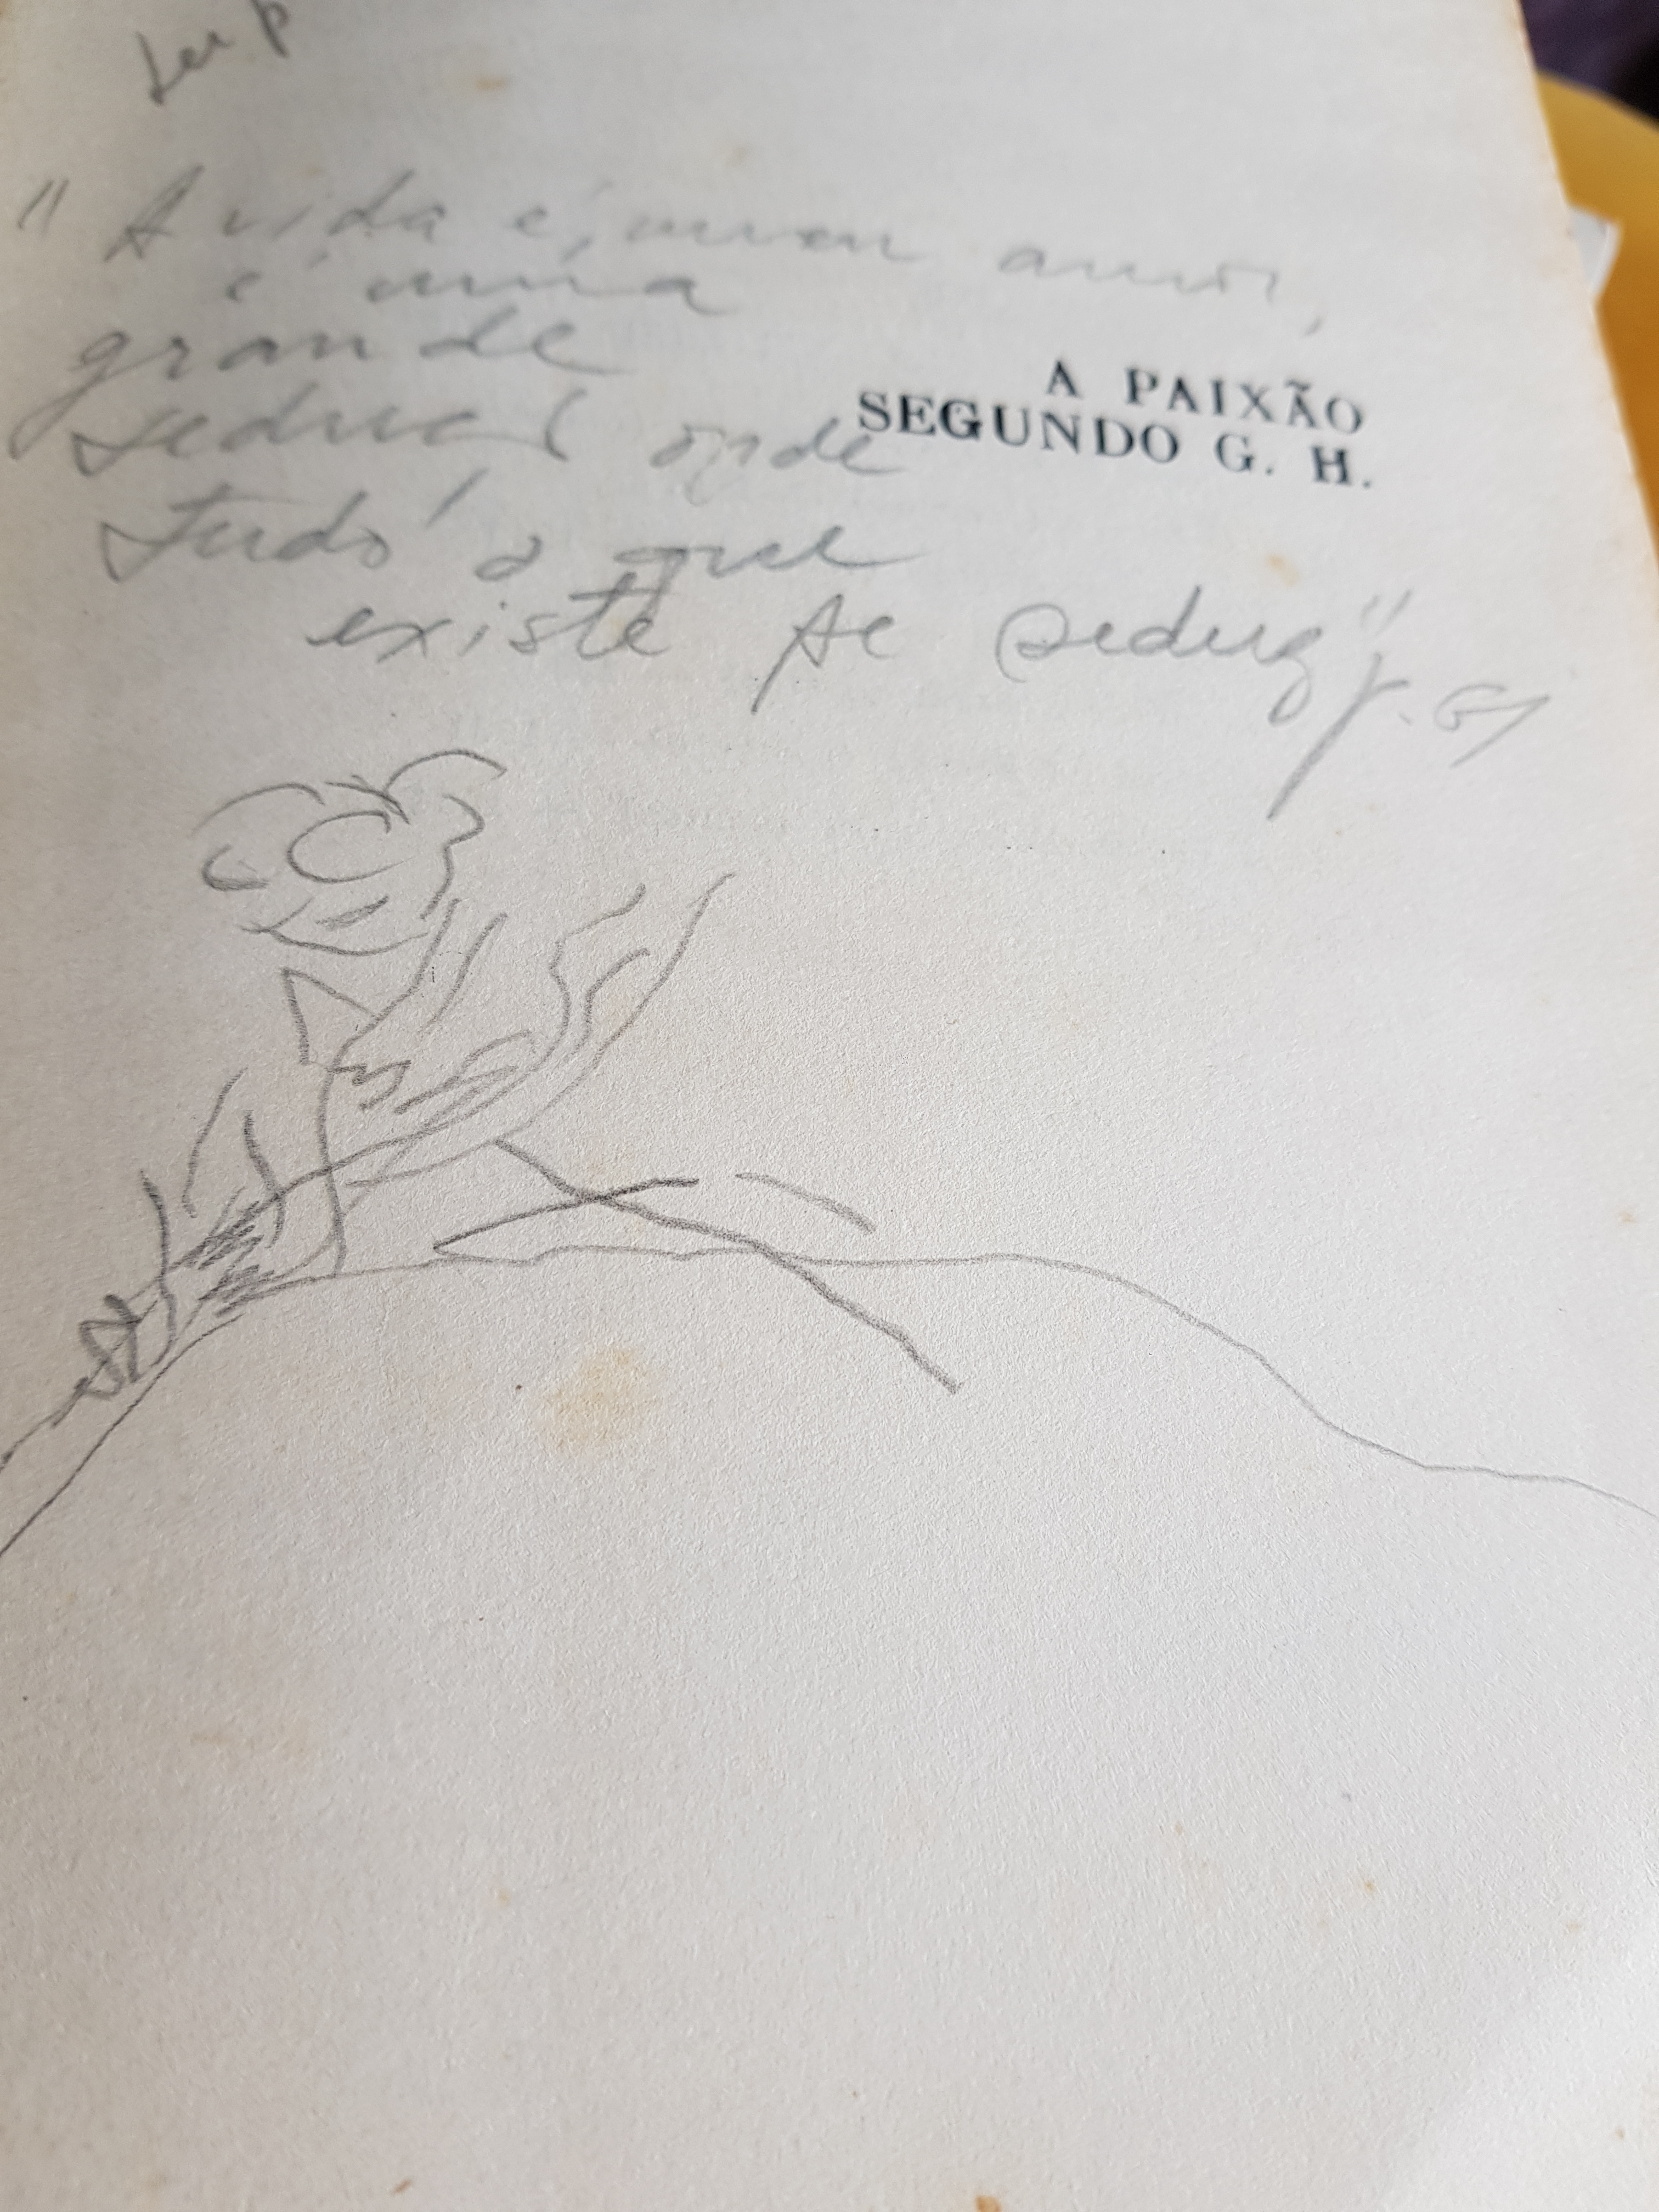 "A vida é, meu amor,
é uma
grande
sedução onde
A PAIXÃO
SEGUNDO G. H.
tudo o que
existe se seduz"